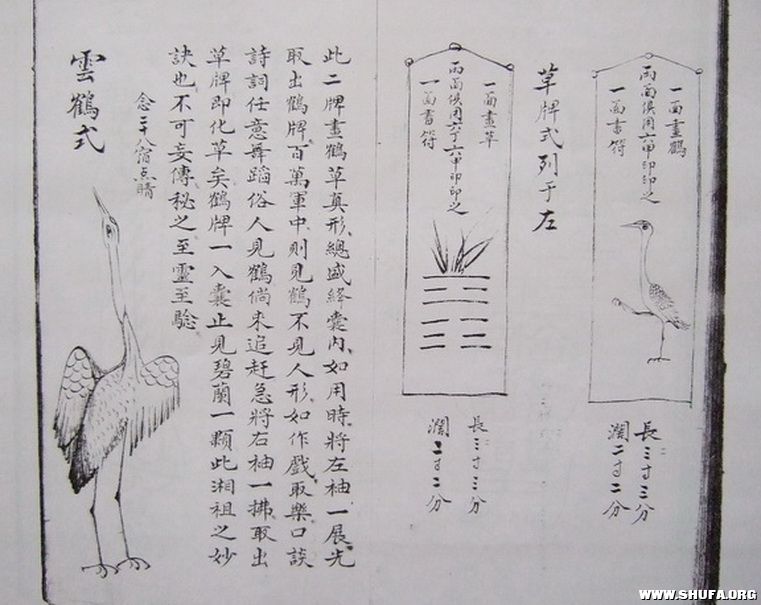 一面畫鶴
兩面俱用六甲印印之
一面書符
長三寸三分
濶二寸二分
草牌式列于左
一面畫草
兩面俱用六丁六甲印印之
一面書符
長三寸三分
濶二寸二分
此二牌畫鶴草真形總盛絳囊內如用時將左袖一展先
取出鶴牌百萬軍中則見鶴不見人形如作戲取樂口談
詩詞任意舞蹈俗人見鶴倘來追赶急將右袖一拂取出
草牌即化草矣鶴牌一入囊止見碧蘭一顆此湘祖之妙
訣也不可妄傳秘之至靈至驗
念二十八宿点睛
雲鶴式
WWW.SHUFA.ORG